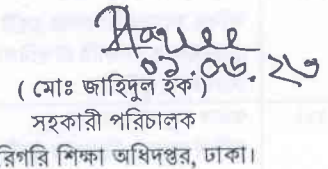 Haque
০১.০৬.২৩
( মোঃ জাহিদুল হক )
সহকারী পরিচালক
রিগরি শিক্ষা অধিদপ্তর, ঢাকা।